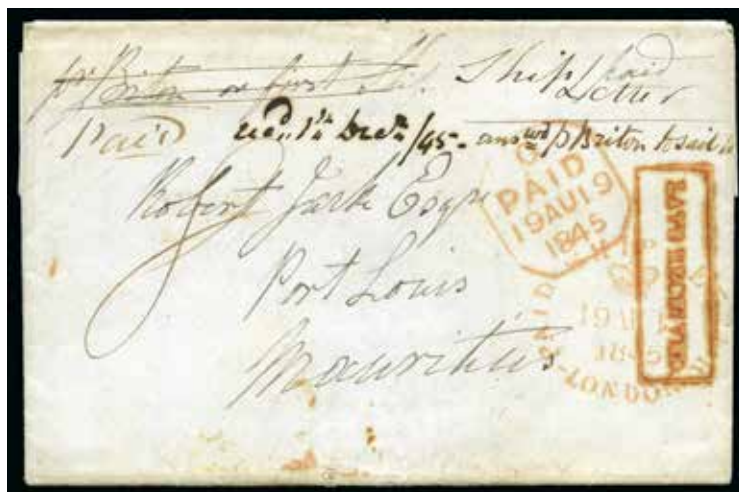 pr Briton or first Ship. Ship Letter paid
Paid
recd. 1st Decr/45 - answd p Briton to sail in
Robert Jack Esqre
Port Louis
Mauritius
PAID
19 AU 19
1845
PAID
19 AU
1845
LONDON